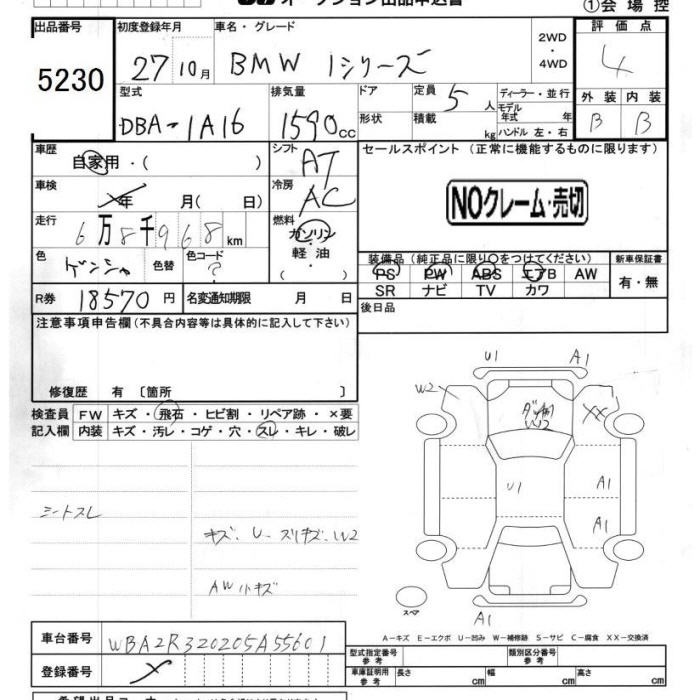 オークション出品申込書
①会場控
出品番号 初度登録年月 車名・グレード 2WD・4WD 評価点
5230 27 10月 BMW 1シリーズ 4
型式 排気量 ドア 定員 5人 ディーラー・並行 外装 内装
DBA-1A16 1590cc 形状 積載 kg モデル年式 年 ハンドル 左・右 B B
車歴 自家用・( ) シフト AT セールスポイント (正常に機能するものに限ります)
車検 年 月( 日) 冷房 AC
NOクレーム・売切
走行 6万8千968km 燃料 ガソリン 軽油 ( )
色 ゲンシャ 色替 色コード ?
装備品(純正品に限り○をつけてください) 新車保証書
PS PW ABS エアB AW 有・無
SR ナビ TV カワ
R券 18570円 名変通知期限 月 日 後日品
注意事項申告欄(不具合内容等は具体的に記入して下さい)
修復歴 有 〔箇所 〕
検査員 FW キズ・飛石・ヒビ割・リペア跡・×要
記入欄 内装 キズ・汚レ・コゲ・穴・スレ・キレ・破レ
シートスレ
キズ、U、スリキズ、W2
AW小キズ
U1 A1
W2 XX
W2
U1 A1
A1
スペア
A1
A-キズ E-エクボ U-凹み W-補修跡 S-サビ C-腐食 XX-交換済
車台番号 WBA2R320205A55601
登録番号
型式指定番号 参考 類別区分番号 参考
車庫証明用 参考 長さ cm 幅 cm 高さ cm